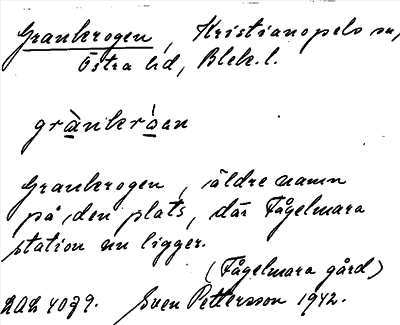 Grankrogen, Kristianopels sn,
Östra hd, Blek. l.
grànkròan
Grankrogen, äldre namn
på den plats, där Fågelmara
station nu ligger.
(Fågelmara gård)
Sven Pettersson 1942.